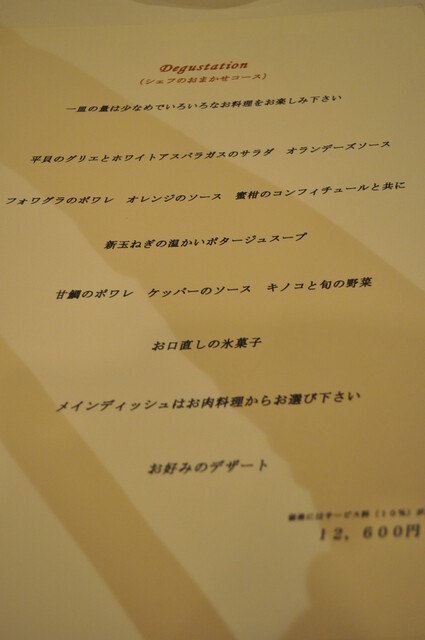 Degustation
(シェフのおまかせコース)
一皿の量は少なめでいろいろなお料理をお楽しみ下さい
平貝のグリエとホワイトアスパラガスのサラダ オランデーズソース
フォワグラのポワレ オレンジのソース 蜜柑のコンフィチュールと共に
新玉ねぎの温かいポタージュスープ
甘鯛のポワレ ケッパーのソース キノコと旬の野菜
お口直しの氷菓子
メインディッシュはお肉料理からお選び下さい
お好みのデザート
価格にはサービス料(10%)が
12,600円